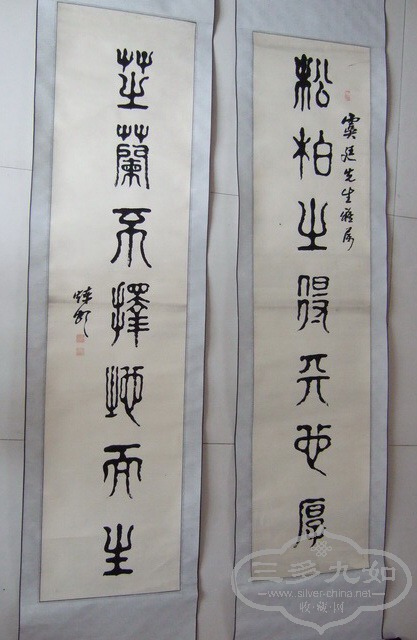 松柏之得天也厚
虞廷先生雅屬
芝蘭不擇地而生
三多九如
www.silver-china.net
收藏网